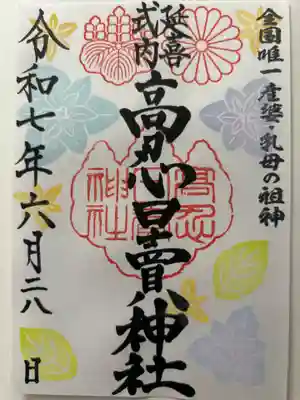 全国唯一産婆・乳母の祖神
延喜
式内
高忍日賣神社
高忍
神社
令和七年六月二八日